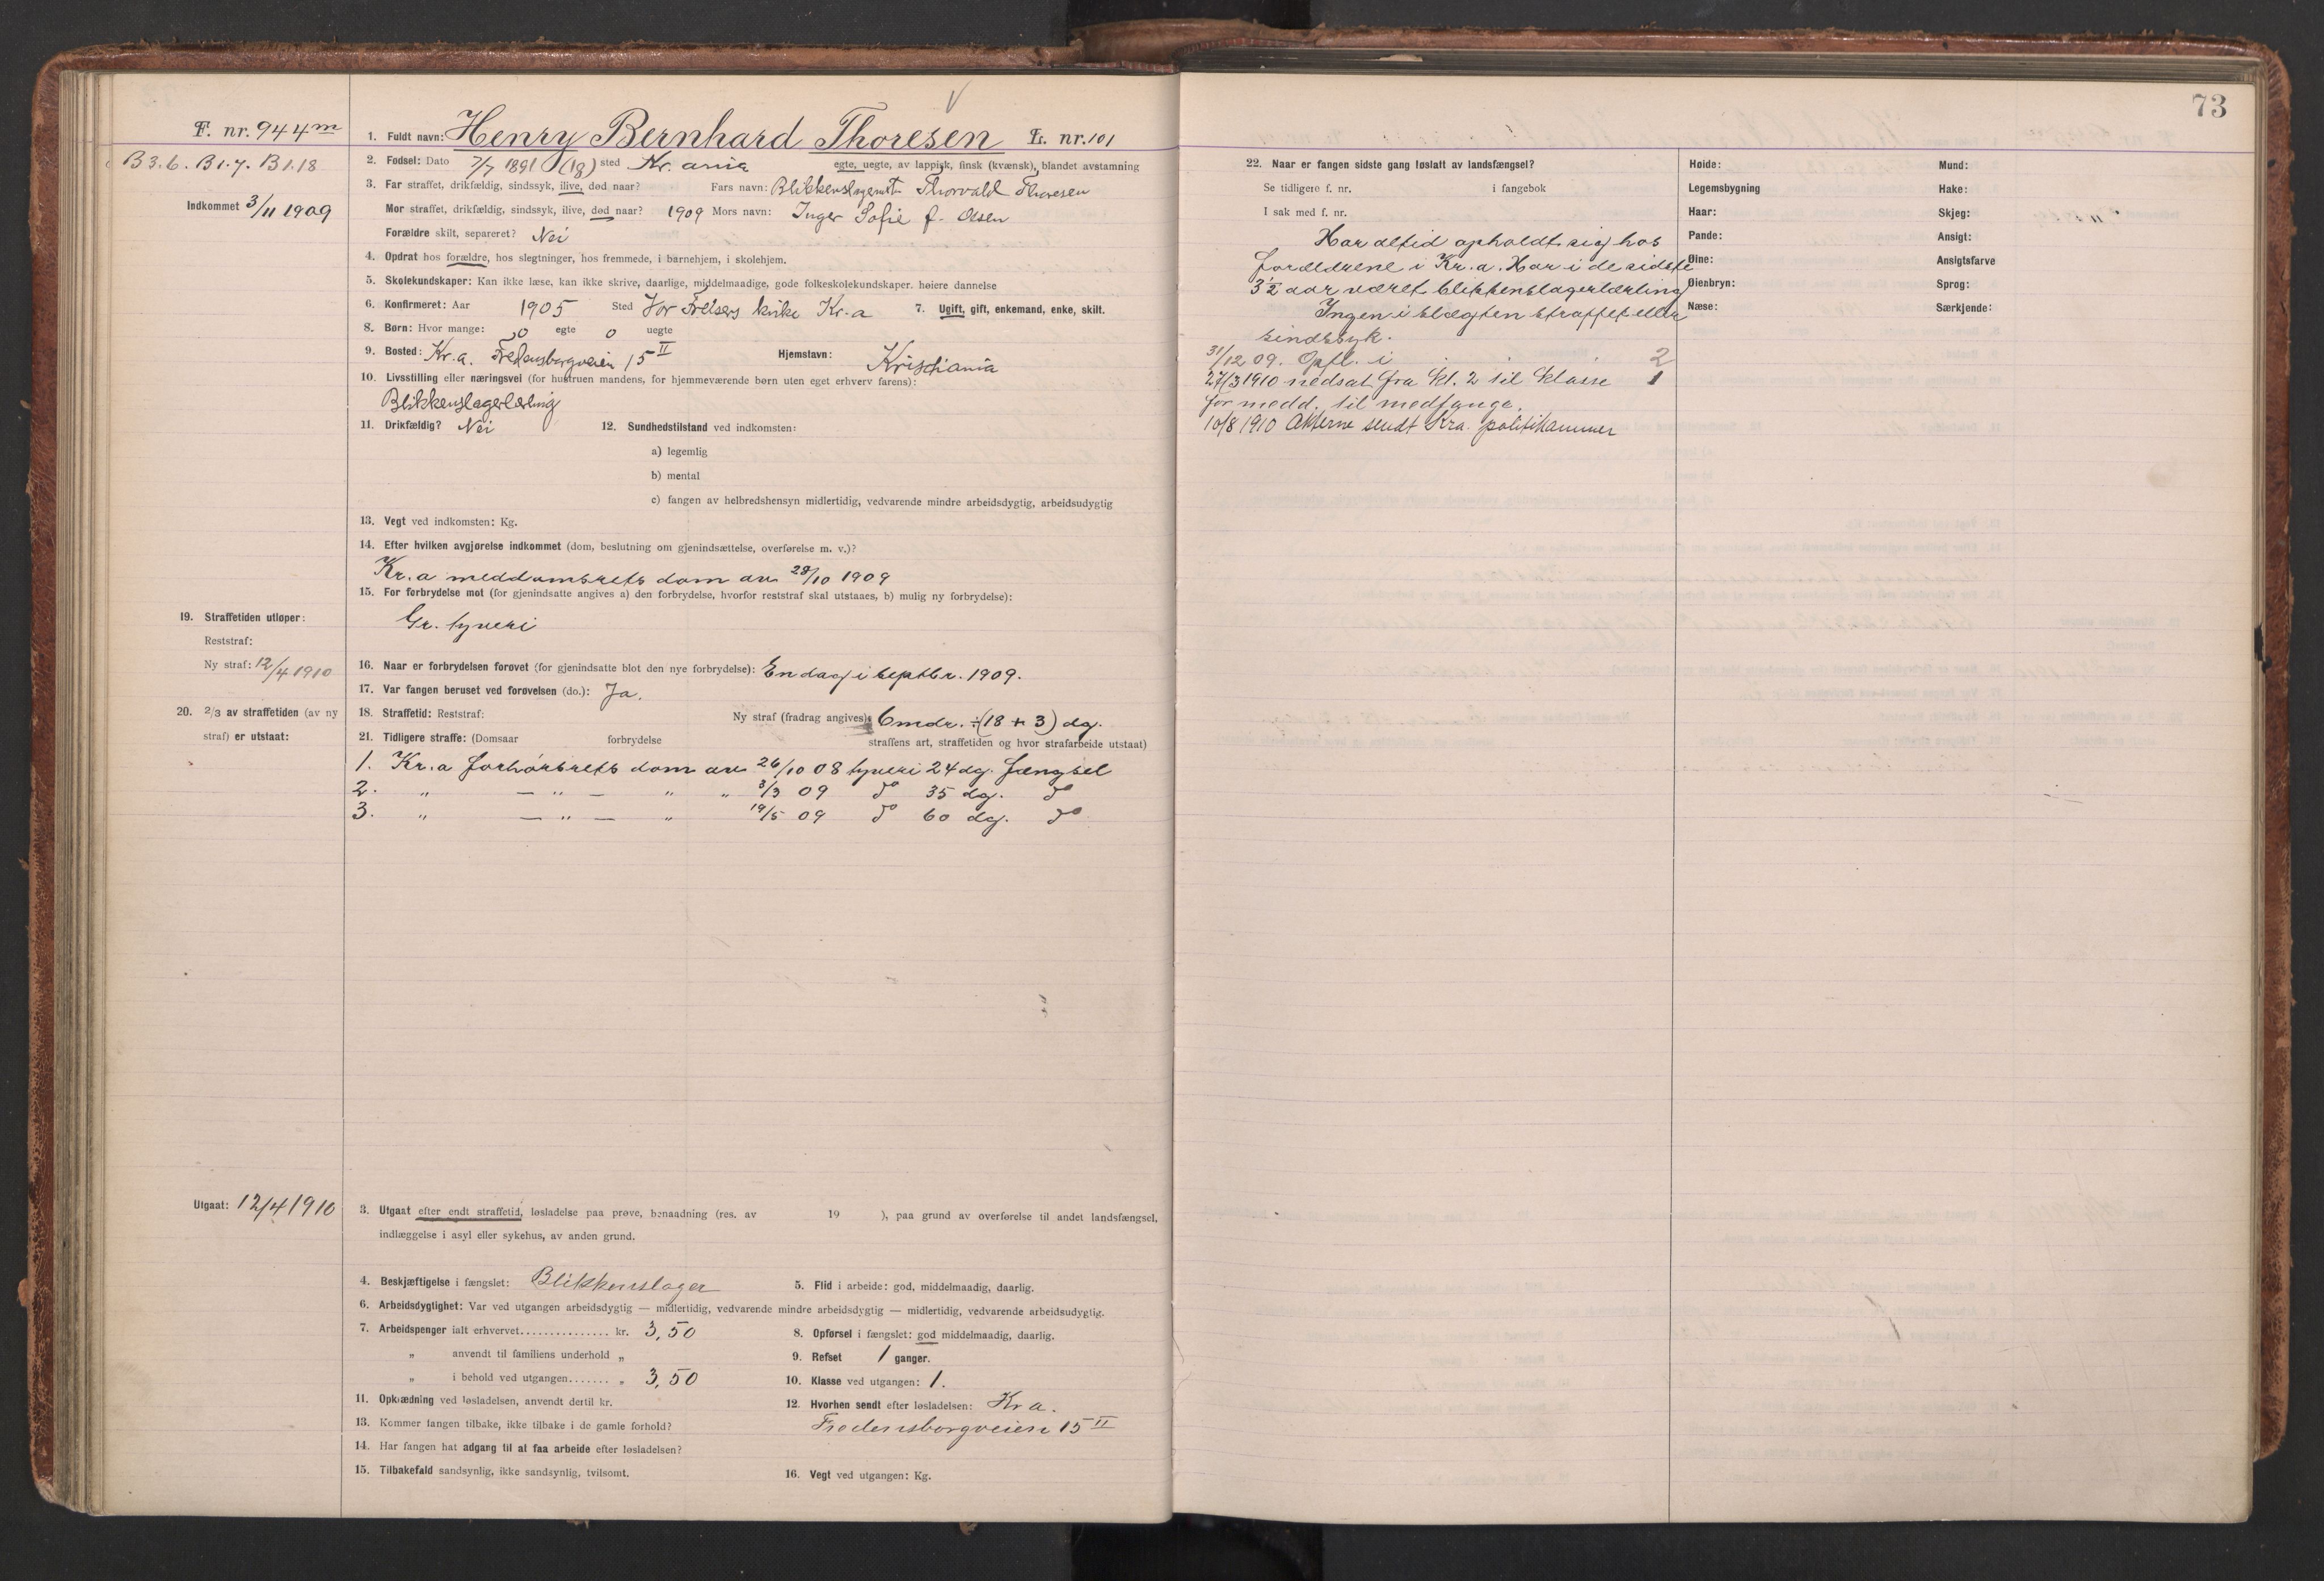 F. nr. 944 m
B 3.6. B 1.7. B 1.18
Indkommet 3/11 1909
1. Fuldt navn: Henry Bernhard Thoresen L. nr. 101
2. Fødsel: Dato 7/7 1891 (18) sted Kr.ania egte, uegte, av lappisk, finsk (kvænsk), blandet avstamning
3. Far straffet, drikfældig, sindssyk, ilive, død naar? Fars navn: Blikkenslagermstr Thorvald Thoresen
Mor straffet, drikfældig, sindssyk, ilive, død naar? 1909 Mors navn: Inger Sofie f. Olsen
Forældre skilt, separeret? Nei
4. Opdrat hos forældre, hos slegtninger, hos fremmede, i barnehjem, i skolehjem.
5. Skolekundskaper: Kan ikke læse, kan ikke skrive, daarlige, middelmaadige, gode folkeskolekundskaper. høiere dannelse
6. Konfirmeret: Aar 1905 Sted Vor Frelsers kirke Kr.a 7. Ugift, gift, enkemand, enke, skilt.
8. Børn: Hvor mange: 0 egte 0 uegte
9. Bosted: Kr.a. Fredensborgveien 15 II Hjemstavn: Kristiania
10. Livsstilling eller næringsvei (for hustruen mandens, for hjemmeværende børn uten eget erhverv farens):
Blikkenslagerlærling
11. Drikfældig? Nei 12. Sundhedstilstand ved indkomsten:
a) legemlig
b) mental
c) fangen av helbredshensyn midlertidig, vedvarende mindre arbeidsdygtig, arbeidsudygtig
13. Vegt ved indkomsten: Kg.
14. Efter hvilken avgjørelse indkommet (dom, beslutning om gjenindsættelse, overførelse m. v.)?
Kr.a meddomsrets dom av 28/10 1909
15. For forbrydelse mot (for gjenindsatte angives a) den forbrydelse, hvorfor reststraf skal utstaaes, b) mulig ny forbrydelse):
Gr. tyveri
19. Straffetiden utløper:
Reststraf:
Ny straf: 12/4 1910
16. Naar er forbrydelsen forøvet (for gjenindsatte blot den nye forbrydelse): En dag i septbr. 1909.
17. Var fangen beruset ved forøvelsen (do.): Ja.
20. 2/3 av straffetiden (av ny
straf) er utstaat:
18. Straffetid: Reststraf: Ny straf (fradrag angives): 6 mdr. ÷ (18 + 3) dg.
21. Tidligere straffe: (Domsaar forbrydelse straffens art, straffetiden og hvor strafarbeide utstaat)
1. Kr.a forhørsrets dom av 26/10 08 tyveri 24 dg. fængsel
2. " — " — " " 3/3 09 do 35 dg. do
3. " — " — " 19/5 09 do 60 dg. do
Utgaat: 12/4 1910
3. Utgaat efter endt straffetid, løsladelse paa prøve, benaadning (res. av 19 ), paa grund av overførelse til andet landsfængsel,
indlæggelse i asyl eller sykehus, av anden grund.
4. Beskjæftigelse i fængslet: Blikkenslager 5. Flid i arbeide: god, middelmaadig, daarlig.
6. Arbeidsdygtighet: Var ved utgangen arbeidsdygtig — midlertidig, vedvarende mindre arbeidsdygtig — midlertidig, vedvarende arbeidsudygtig.
7. Arbeidspenger ialt erhvervet............... kr. 3,50 8. Opførsel i fængslet: god middelmaadig, daarlig.
" anvendt til familiens underhold " 9. Refset 1 ganger.
" i behold ved utgangen....... " 3,50 10. Klasse ved utgangen: 1.
11. Opklædning ved løsladelsen, anvendt dertil kr. 12. Hvorhen sendt efter løsladelsen: Kr a.
13. Kommer fangen tilbake, ikke tilbake i de gamle forhold? Fredensborgveien 15 II
14. Har fangen hat adgang til at faa arbeide efter løsladelsen?
15. Tilbakefald sandsynlig, ikke sandsynlig, tvilsomt. 16. Vegt ved utgangen: Kg.
73
22. Naar er fangen sidste gang løslatt av landsfængsel?
Se tidligere f. nr. i fangebok
I sak med f. nr.
Har altid opholdt sig hos
forældrene i Kr.a. Har i de sidste
3 1/2 aar været blikkenslagerlærling
Ingen i slægten straffet eller
sindssyk.
31/12 09. Opfl. i 2
27/3 1910 nedsat fra kl. 2 til klasse 1
for medd. til medfange.
10/8 1910 Akterne sendt Kra. politikammer
Høide: Mund:
Legemsbygning Hake:
Haar: Skjeg:
Pande: Ansigt:
Øine: Ansigtsfarve
Øienbryn: Sprog:
Næse: Særkjende: